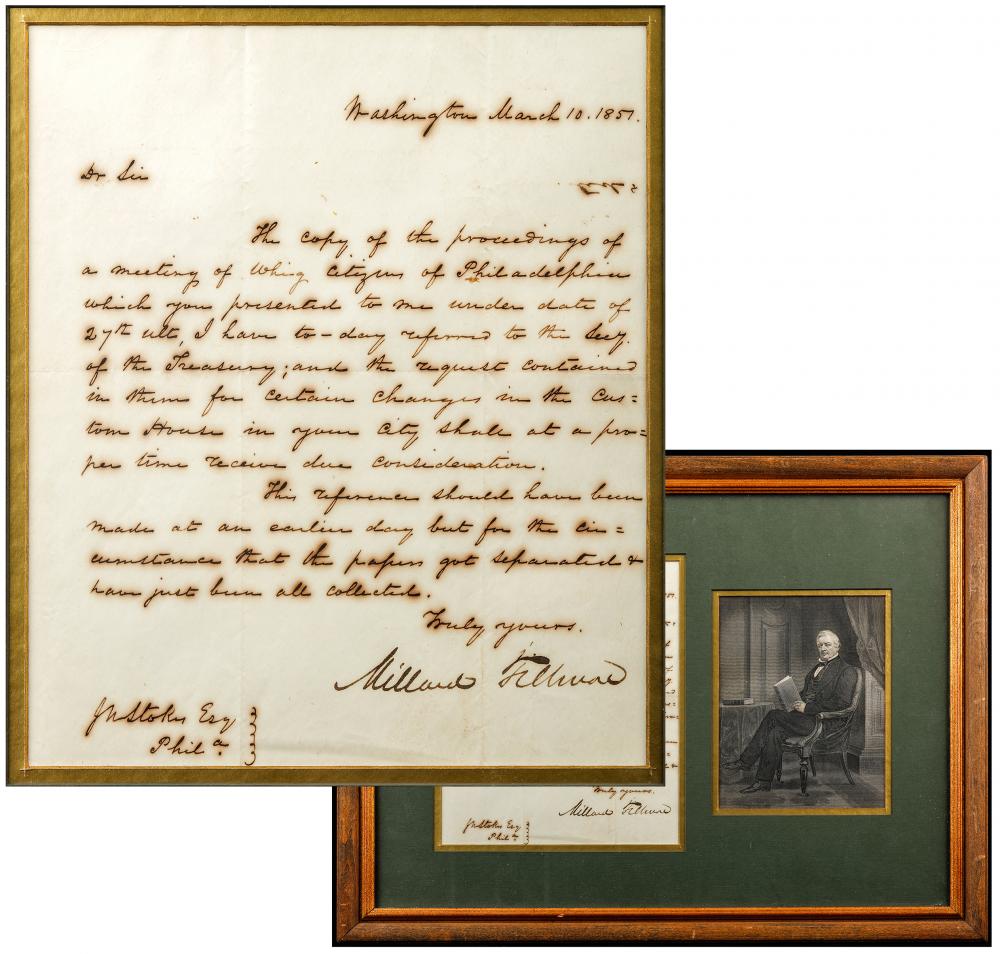 Washington March 10. 1851.
Dr Sir
The copy of the proceedings of
a meeting of Whig citizens of Philadelphia
which you presented to me under date of
27th ult, I have to-day referred to the Secy.
of the Treasury; and the request contained
in them for certain changes in the Cus=
tom House in your city shall at a pro=
per time receive due consideration.
This reference should have been
made at an earlier day but for the cir=
cumstance that the papers got separated &
have just been all collected.
Truly yours.
Millard Fillmore
JN Stokes Esq
Phila.
Truly yours.
Millard Fillmore
JN Stokes Esq
Phila.